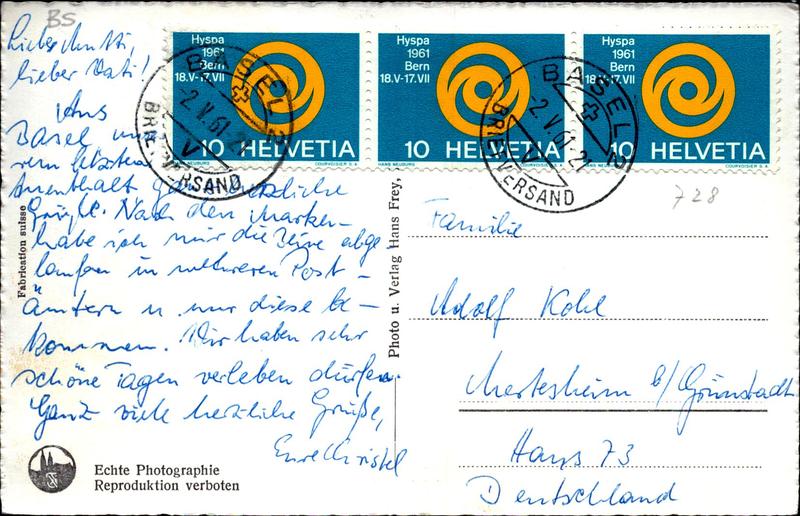 BS
Liebe Mutti,
lieber Vati!
Aus
Basel und
vom letzten
Aufenthalt ganz herzliche
Grüße. Nach den Marken
habe ich mir die Beine abge
laufen in mehreren Post-
ämtern u. nur diese be-
kommen. Wir haben sehr
schöne Tagen verleben dürfen.
Ganz viele herzliche Grüße,
Eure Christel
Hyspa
1961
Bern
18.V-17.VII
10 HELVETIA
HANS NEUBURG COURVOISIER S.A.
Hyspa
1961
Bern
18.V-17.VII
10 HELVETIA
HANS NEUBURG COURVOISIER S.A.
Hyspa
1961
Bern
18.V-17.VII
10 HELVETIA
HANS NEUBURG COURVOISIER S.A.
BASEL 2
-2.V.61-21
V
BRIEFVERSAND
BASEL 2
-2.V.61-21
V
BRIEFVERSAND
728
Familie
Adolf Kohl
Mertesheim b/Grünstadt
Haus 73
Deutschland
Fabrication suisse
Photo u. Verlag Hans Frey,
Echte Photographie
Reproduktion verboten